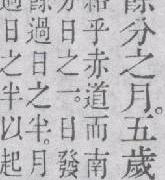 餘分之月。五歲
和乎赤道而南
分日之一。日發
餘過日之半。月
日之半以起